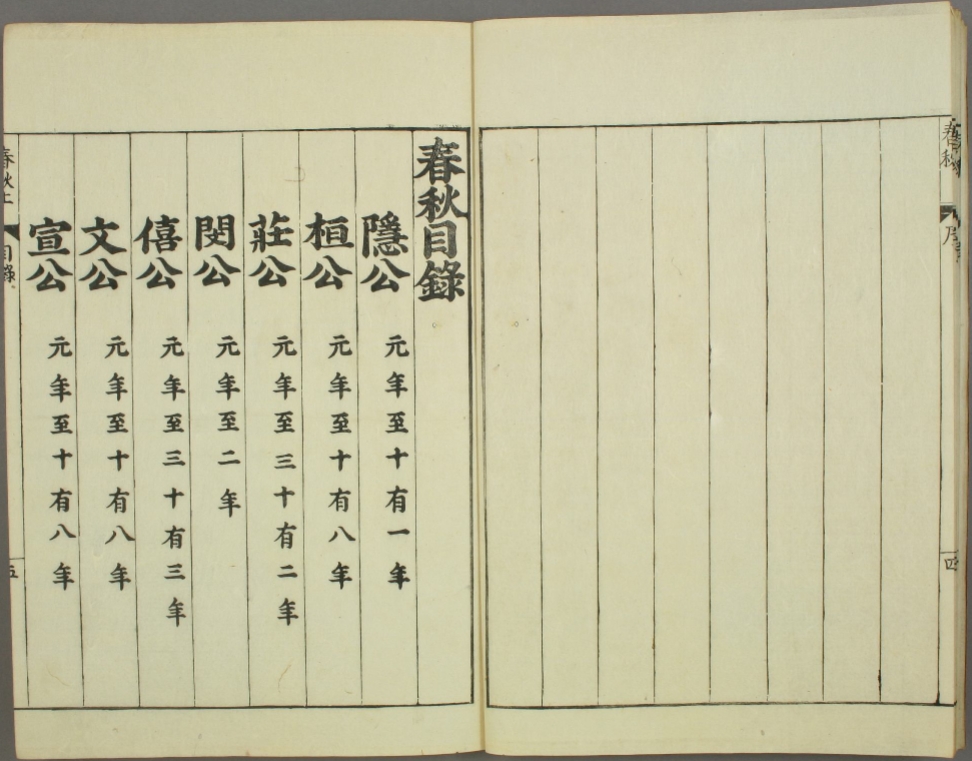 春秋
序
四
春秋目錄
隱公 元年至十有一年
桓公 元年至十有八年
莊公 元年至三十有二年
閔公 元年至二年
僖公 元年至三十有三年
文公 元年至十有八年
宣公 元年至十有八年
春秋上
目錄
五